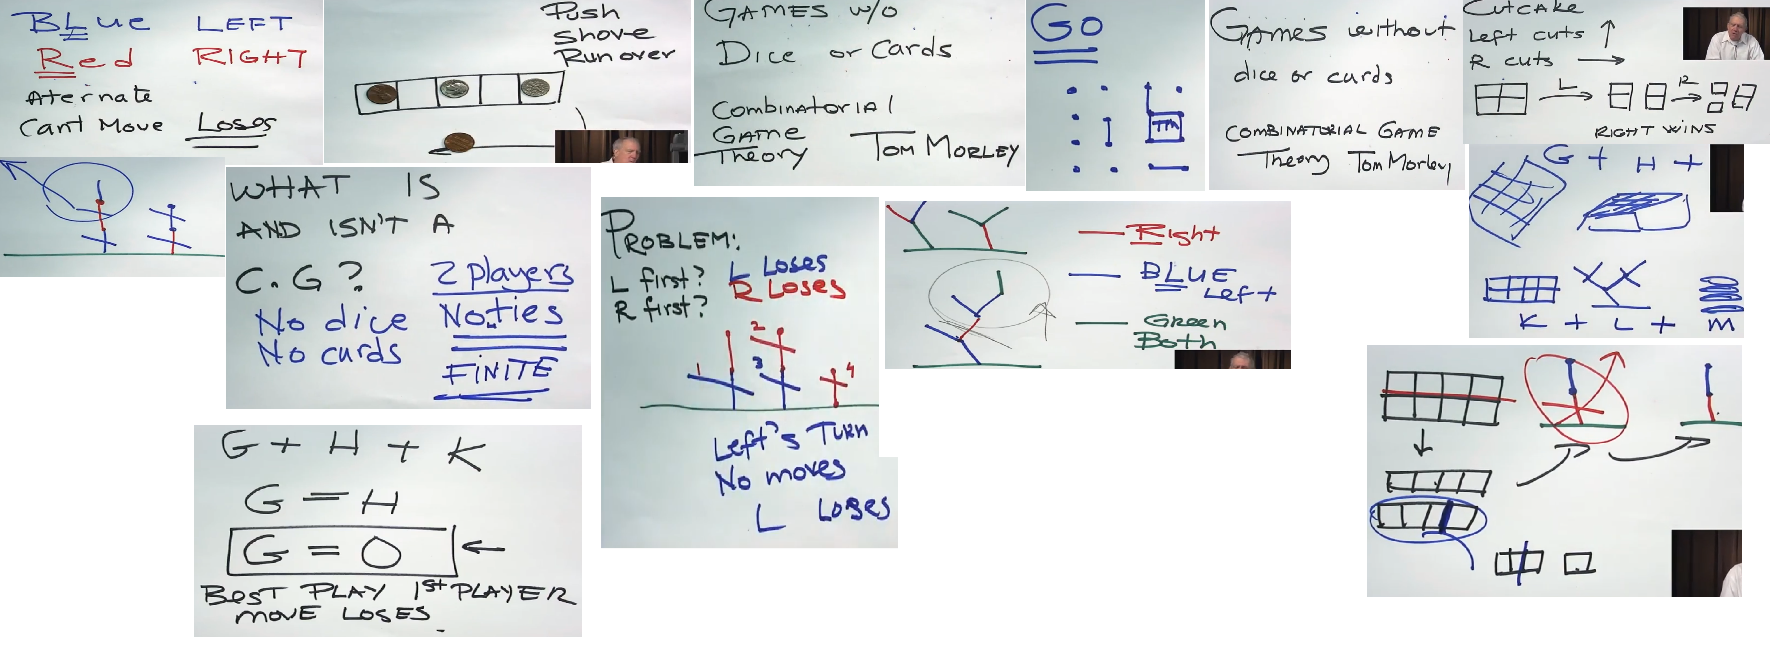 BLue LEFT
Red RIGHT
Aternate
Cant Move Loses
Push
Shove
Run over
GAMES w/o
Dice or Cards
Combinatorial
Game
Theory Tom Morley
Go
Tm
Games without
dice or cards
COMBINATORIAL GAME
Theory Tom Morley
Cutcake
Left cuts ↑
R cuts →
L R
RIGHT WINS
G + H +
K + L + M
WHAT IS
AND ISN'T A
C.G? 2 players
No dice No ties
No cards FINITE
PROBLEM:
L first? L Loses
R first? R Loses
1 2 3 4
Left's Turn
No moves
L Loses
Right
BLUE
Left
Green
Both
G + H + K
G = H
G = O ←
BEST PLAY 1st PLAYER
MOVE LOSES.